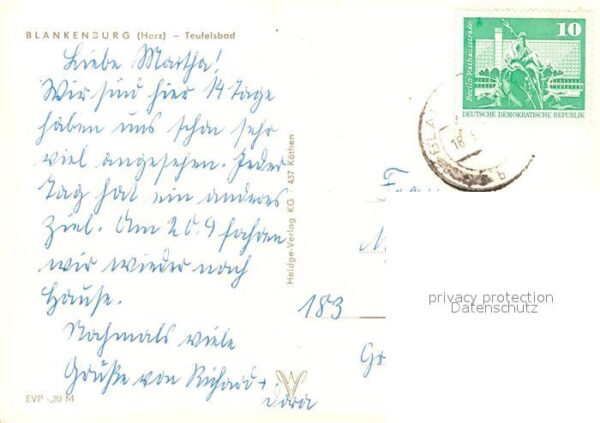 BLANKENBURG (Harz) – Teufelsbad
Liebe Martha!
Wir sind hier 14 Tage
haben uns schon sehr
viel angesehen. Jeder
Tag hat ein anderes
Ziel. Am 20.9 fahren
wir wieder nach
Hause.
Nochmals viele
Grüße von Richard +
Dora
EVP -,20 M
Heldge-Verlag KG · 437 Köthen
10
Berlin, Rathausstraße
DEUTSCHE DEMOKRATISCHE REPUBLIK
183
privacy protection
Datenschutz